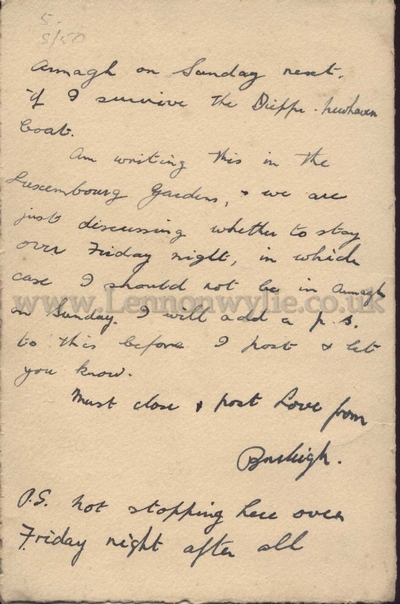 5.
S/50
Armagh on Sunday next,
if I survive the Dieppe-Newhaven
boat.
Am writing this in the
Luxembourg Gardens, & we are
just discussing whether to stay
over Friday night, in which
case I should not be in Armagh
www.Lennonwylie.co.uk
on Sunday. I will add a p.s.
to this before I post & let
you know.
Must close & post Love from
Burleigh.
P.S. Not stopping here over
Friday night after all